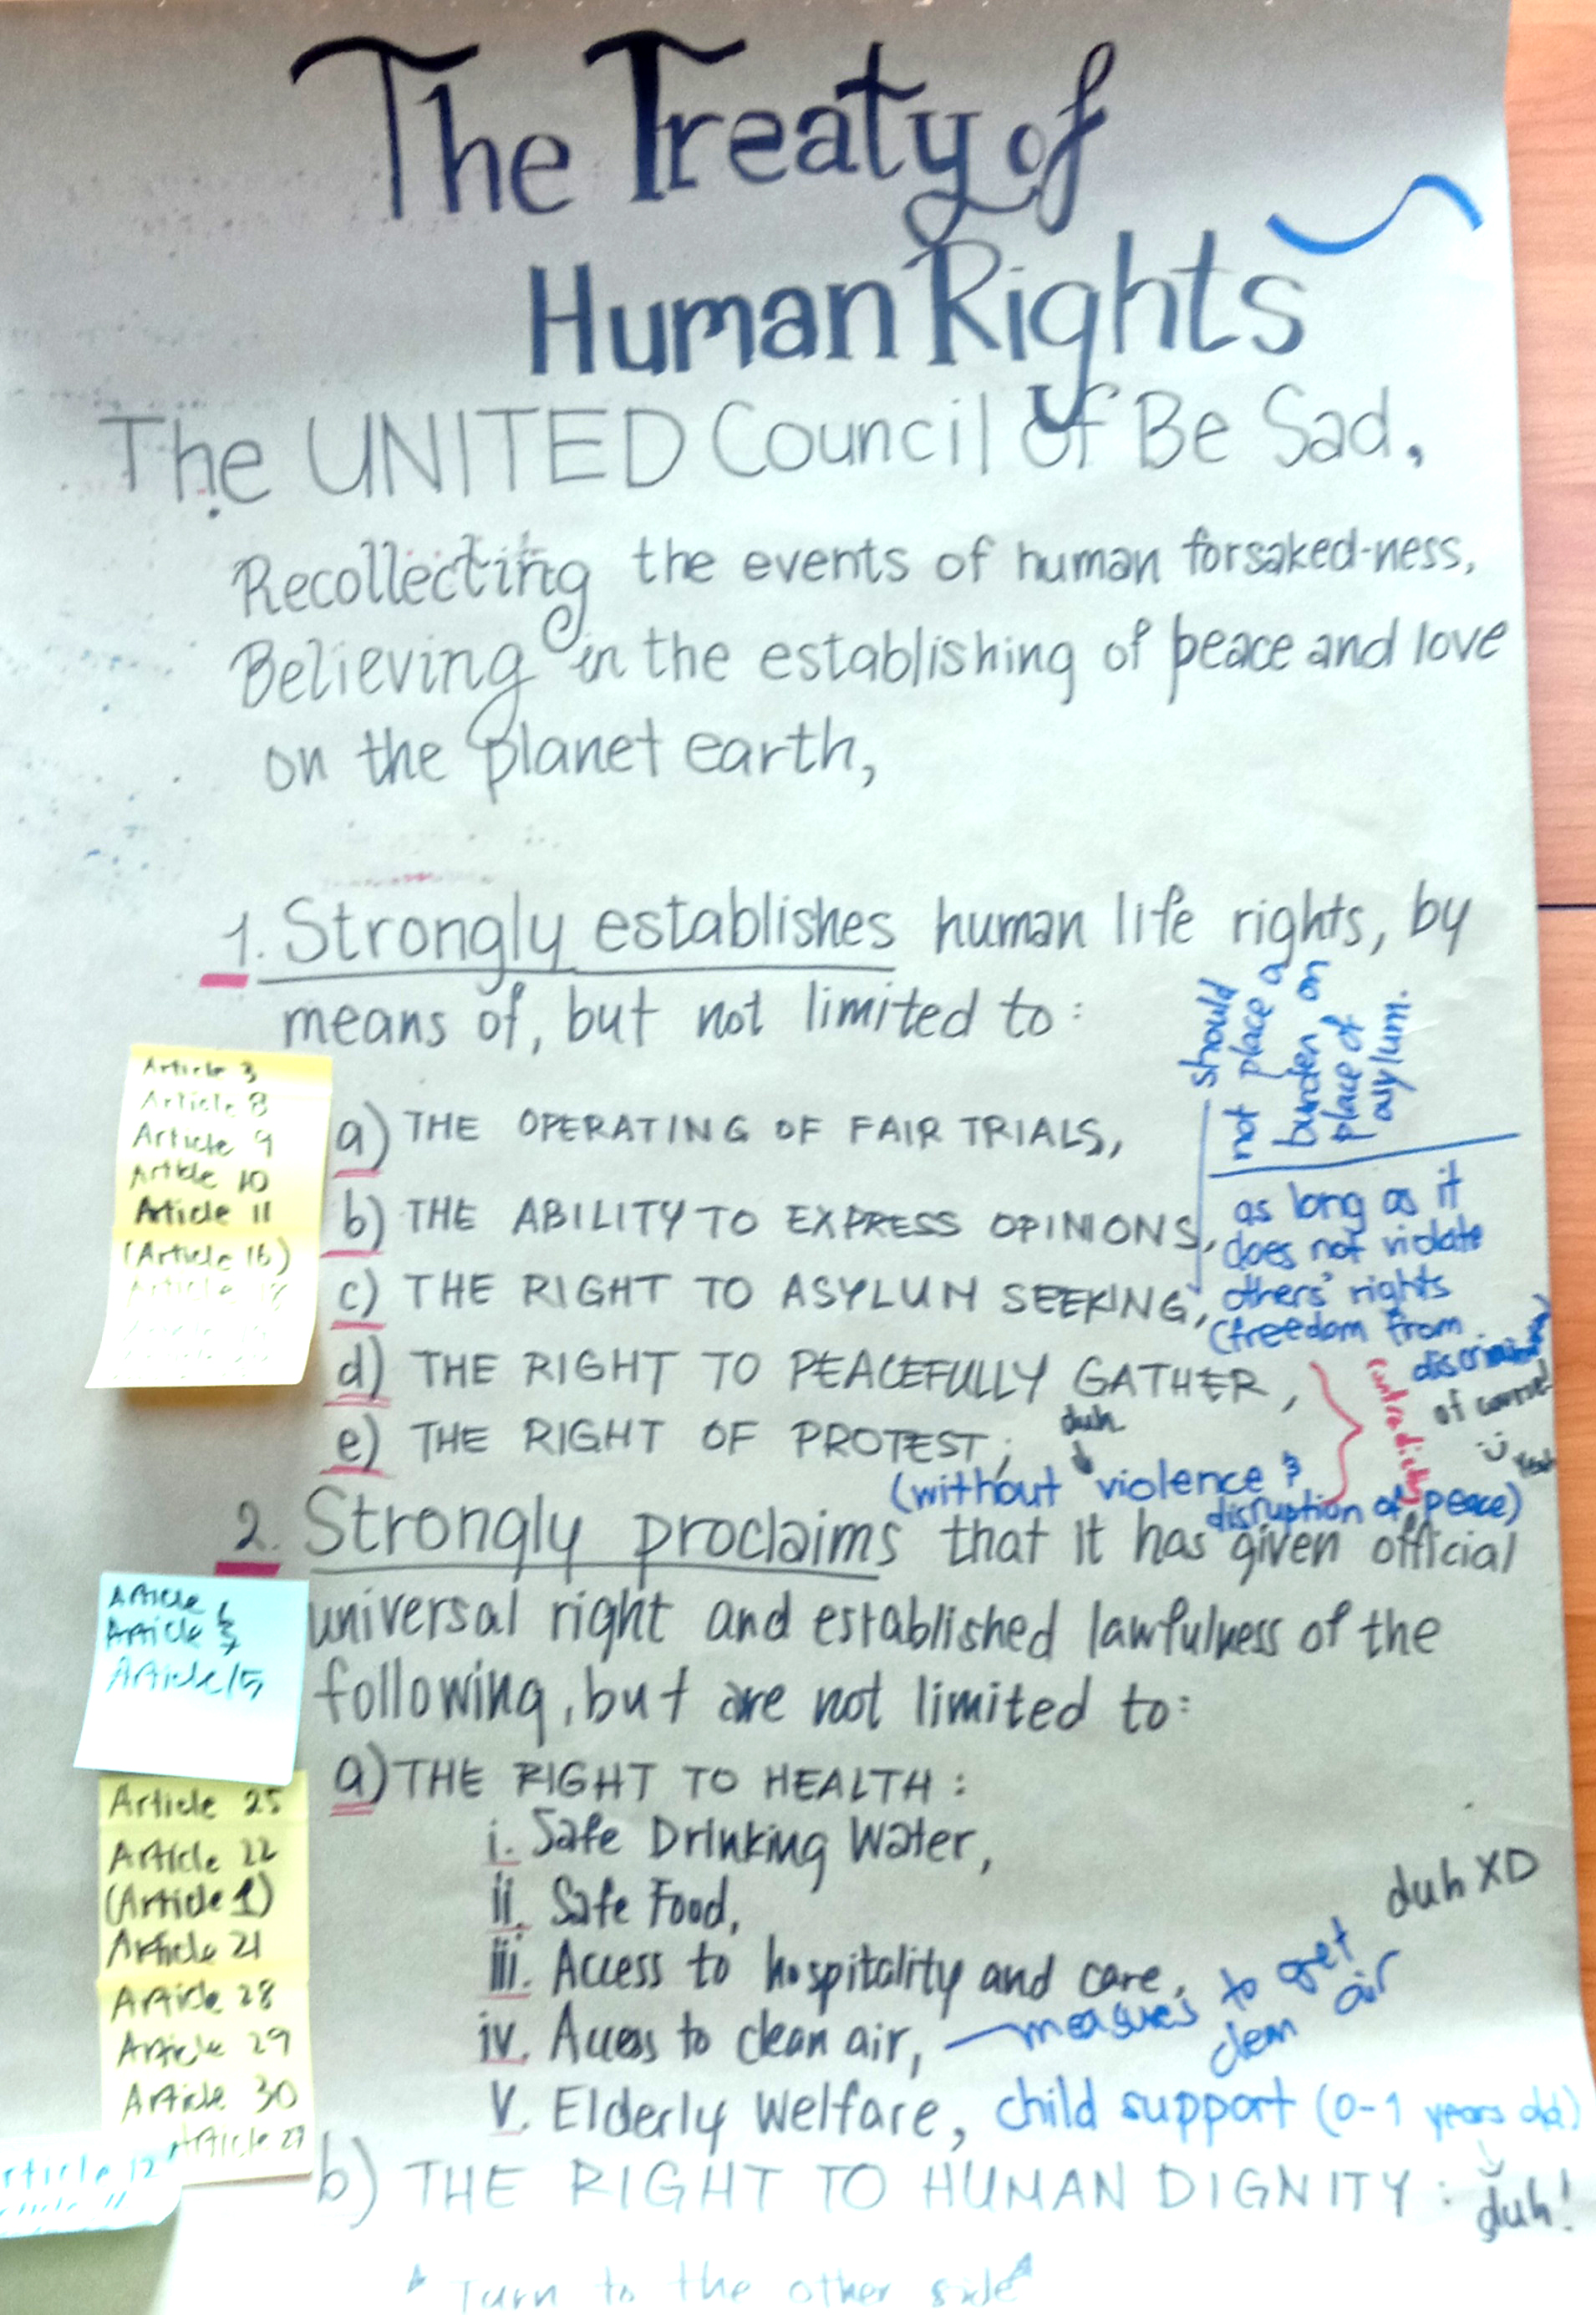 The Treaty of
Human Rights
The UNITED Council of Be Sad,
Recollecting the events of human forsaked-ness,
Believing in the establishing of peace and love
on the planet earth,
1. Strongly establishes human life rights, by
means of, but not limited to:
should
not place a
burden on
place of
asylum.
Article 3
Article 8
Article 9
Article 10
Article 11
(Article 16)
a) THE OPERATING OF FAIR TRIALS,
b) THE ABILITY TO EXPRESS OPINIONS,
as long as it
does not violate
others' rights
(freedom from
c) THE RIGHT TO ASYLUM SEEKING,
d) THE RIGHT TO PEACEFULLY GATHER,
e) THE RIGHT OF PROTEST;
duh
(without violence &
disruption of peace)
of course!
2. Strongly proclaims that it has given official
universal right and established lawfulness of the
following, but are not limited to:
Article
Article
Article 15
a) THE RIGHT TO HEALTH:
i. Safe Drinking Water,
ii. Safe Food,
iii. Access to hospitality and care,
iv. Access to clean air,
measures to get
clean air
duh XD
v. Elderly Welfare, child support (0-1 years old)
duh!
Article 25
Article 22
(Article 1)
Article 21
Article 28
Article 29
Article 30
Article 27
rticle 12
b) THE RIGHT TO HUMAN DIGNITY:
Turn to the other side